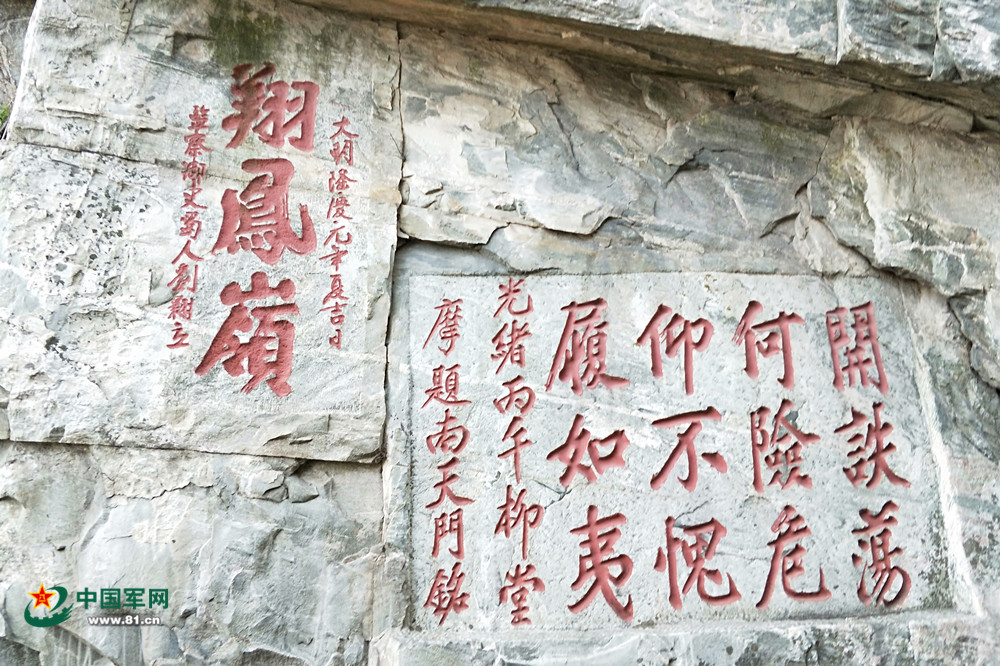 開詄蕩
何險危
仰不愧
履如夷
光緒丙午柳堂
摩題南天門銘
大明隆慶元年夏吉日
翔鳳嶺
察御史蜀人劉立
中国军网
www.81.cn